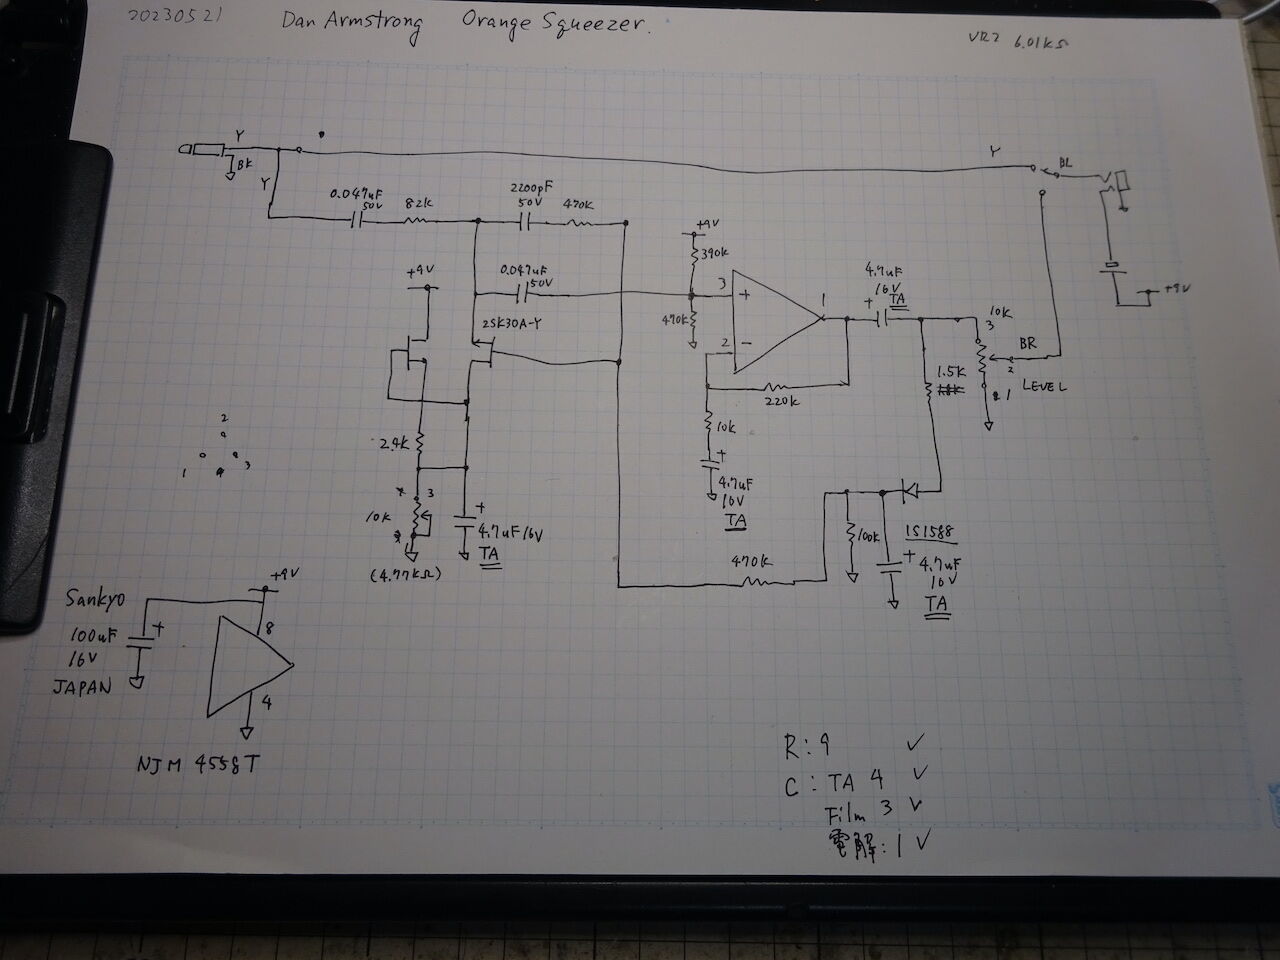 20230521 Dan Armstrong Orange Squeezer.
VR2 6.01kΩ
Y
BK
Y
0.047uF
50V
82K
2200pF
50V
470K
Y
BL
+9V
0.047uF
50V
+9V
390K
4.7uF
16V
+ TA
+9V
2SK30A-Y
470K
3
+
2
-
1
10K
3
BR
2
LEVEL
1
1.5K
220K
2.4K
10K
+
4.7uF
16V
TA
2
1
3
3
10K
+
4.7uF 16V
TA
(4.77kΩ)
470K
100K
1S1588
+
4.7uF
16V
TA
Sankyo
100uF
16V
JAPAN
+
+9V
8
4
NJM 4558T
R : 9 ✓
C : TA 4 ✓
Film 3 ✓
電解 : 1 ✓